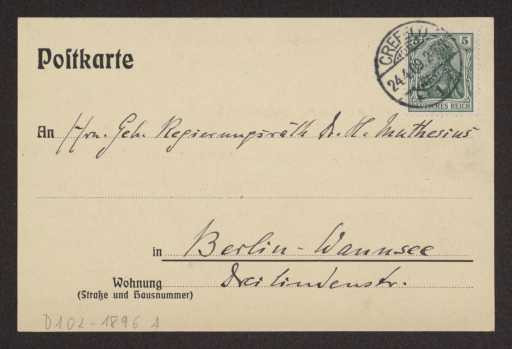 Postkarte
CREFELD
24.4.09
5
DEUTSCHES REICH
An Hrn. Geh. Regierungsrath Dr. H. Muthesius
in Berlin-Wannsee
Wohnung Dreilindenstr.
(Straße und Hausnummer)
D102-1896